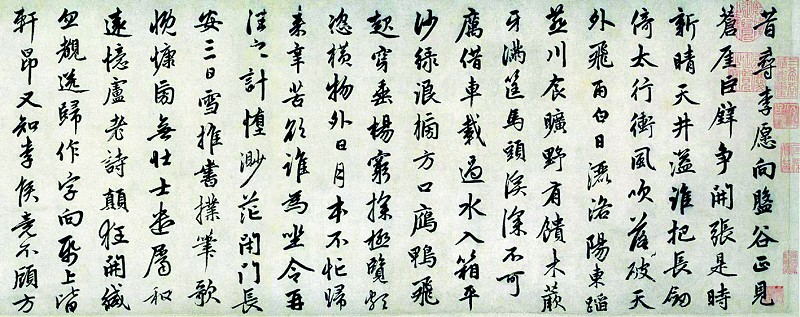 昔尋李愿向盤谷正見
蒼崖巨壁争開張是時
新晴天井溢誰把長劒
倚太行衝風吹落破天
外飛雨白日灑洛陽東蹈
燕川食曠野有饋木蕨
牙滿筐馬頭溪深不可
厲借車載過水入箱平
沙綠浪榜方口鴈鴨飛
起穿垂楊窮探極覽頗
恣橫物外日月本不忙歸
来辛苦欲誰為坐令再
往之計墮渺茫閉門長
安三日雪推書撲筆歌
慨慷旁無壮士遣屬和
遠憶盧老詩顛狂開緘
忽覩送歸作字向紙上皆
軒昂又知李侯竟不顧方